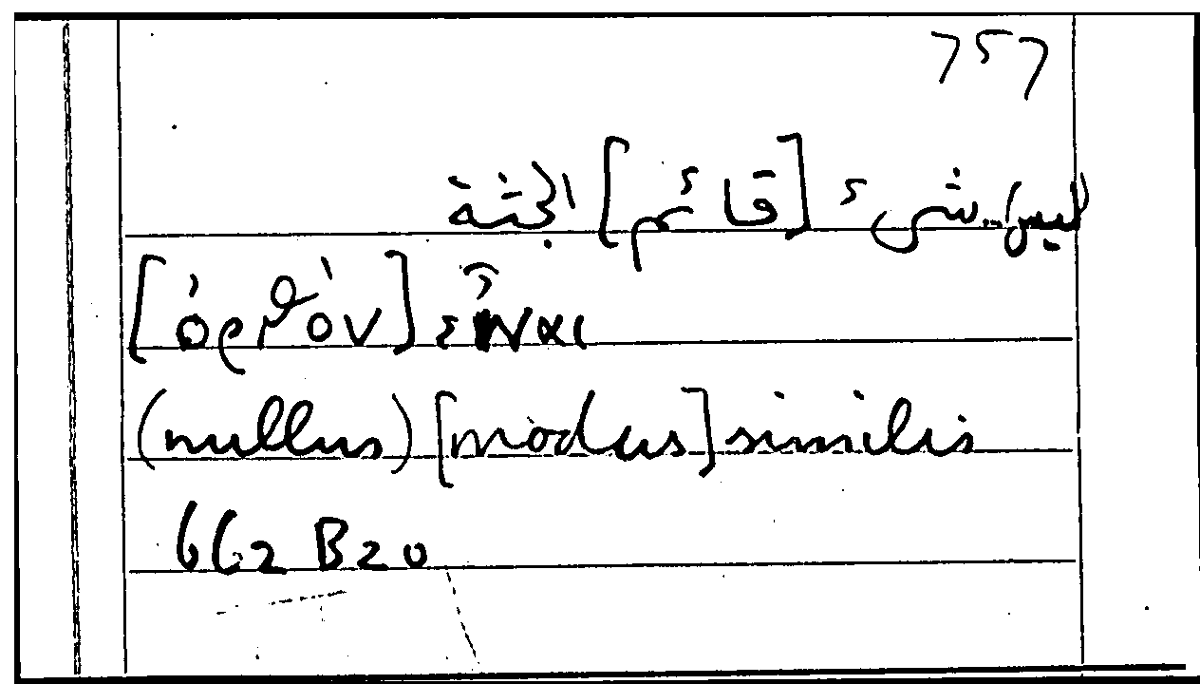 757
ليس) شىء [قائم] الجثة
[ὀρθὸν] εἶναι
(nullus) [modus] similis
662 B20